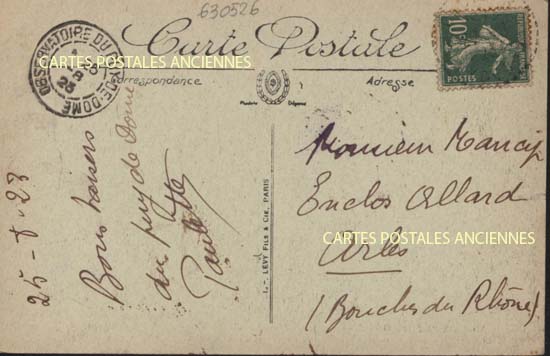 630526
OBSERVATOIRE DU PUY-DE-DÔME
25
Carte Postale
CARTES POSTALES ANCIENNES
Correspondance
Adresse
Plombière Déposée
10c
POSTES
L. - LÉVY FILS & Cie, PARIS
25-8-23
Bons baisers
du puy de Dome
Paulette
Monsieur Mancip
Enclos Allard
CARTES POSTALES ANCIENNES
Arles
(Bouches du Rhône)